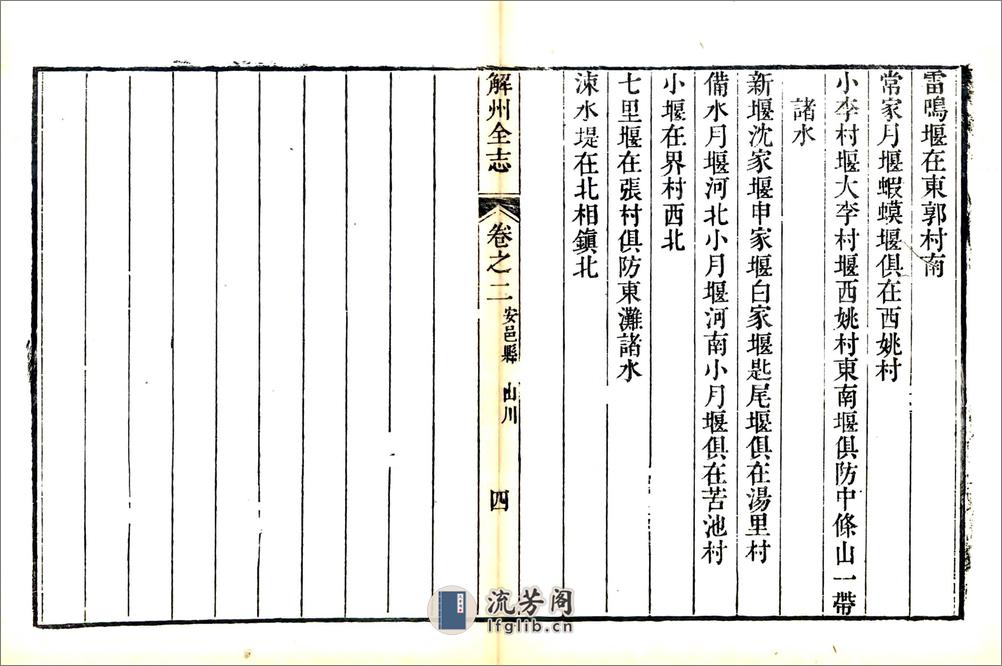 雷鳴堰在東郭村南
常家月堰蝦蟆堰俱在西姚村
小李村堰大李村堰西姚村東南堰俱防中條山一帶
諸水
新堰沈家堰申家堰白家堰匙尾堰俱在湯里村
備水月堰河北小月堰河南小月堰俱在苦池村
小堰在界村西北
七里堰在張村俱防東灘諸水
涑水堤在北相鎮北
解州全志 卷之二 安邑縣 山川 四
流芳阁
lfglib.cn